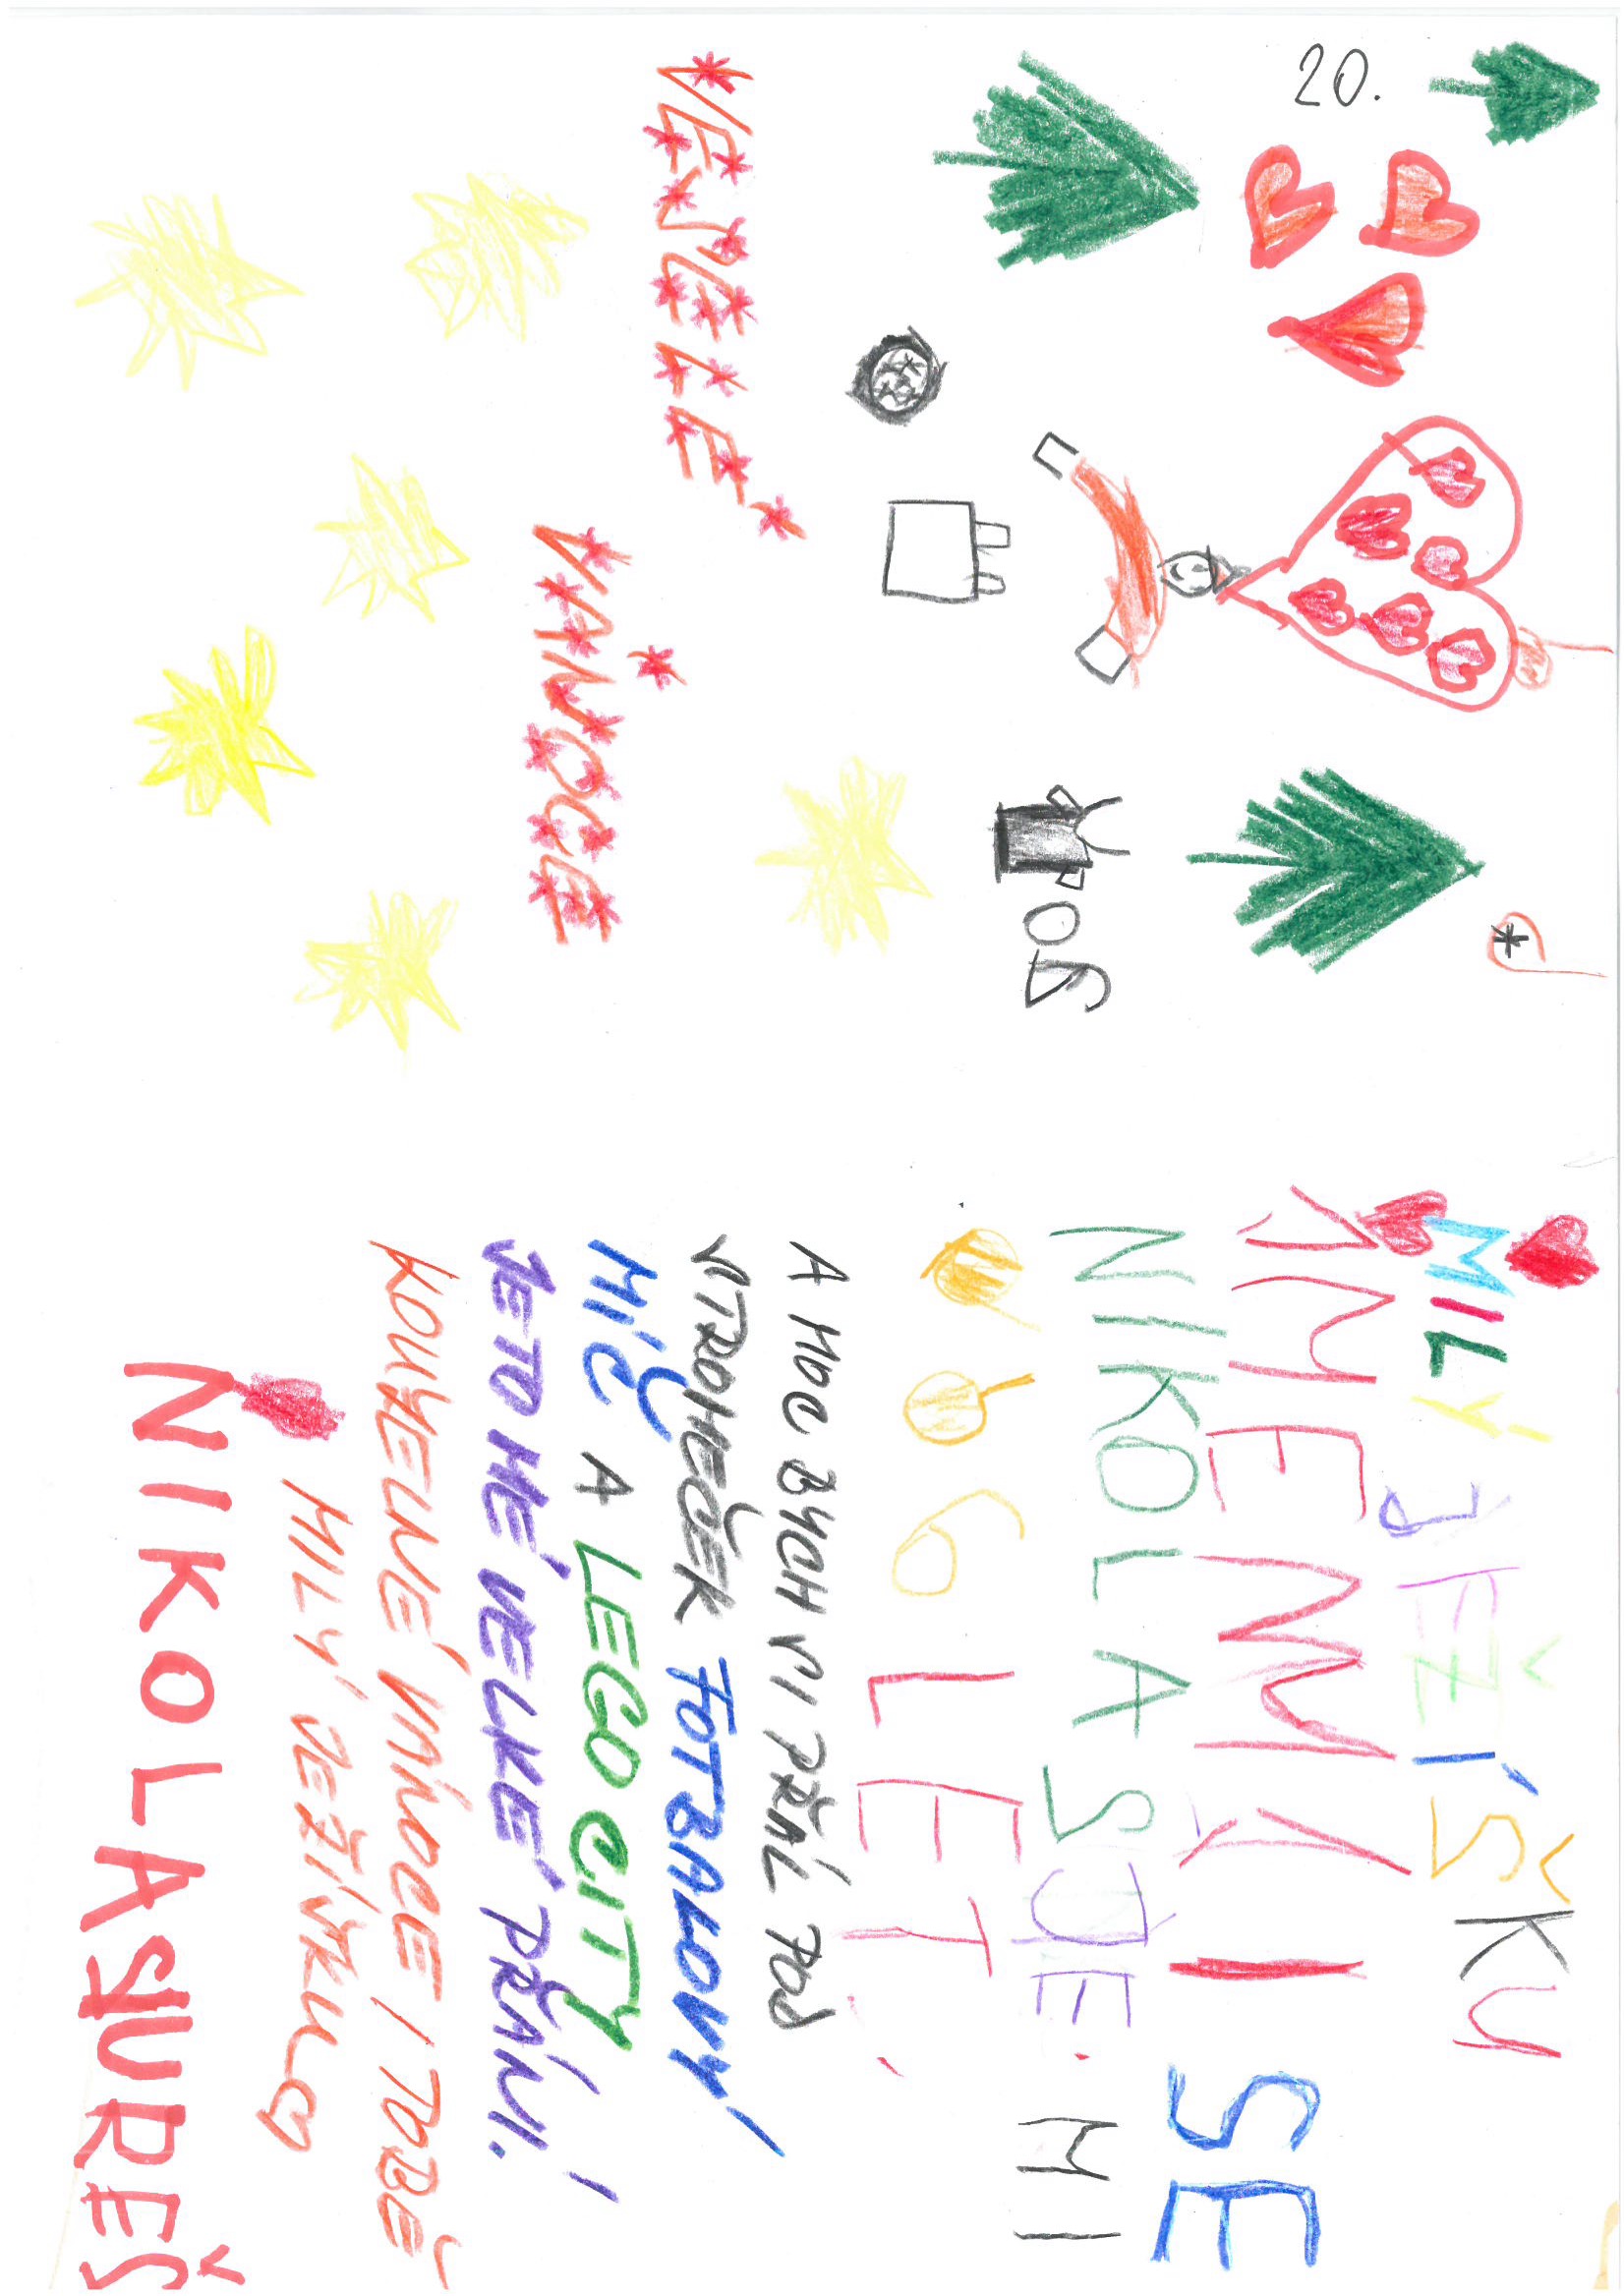 20.
VESELÉ
VÁNOCE
MILÝ JEŽÍŠKU
JMENUJI SE
NIKOLAS JE MI
6 LET.
A MOC BYCH SI PŘÁL POD
STROMEČEK FOTBALOVÝ
MÍČ A LEGO CITY
JE TO MÉ VELKÉ PŘÁNÍ.
KOUZELNÉ VÁNOCE I TOBĚ
MILÝ JEŽÍŠKU
NIKOLAS JUREŠ